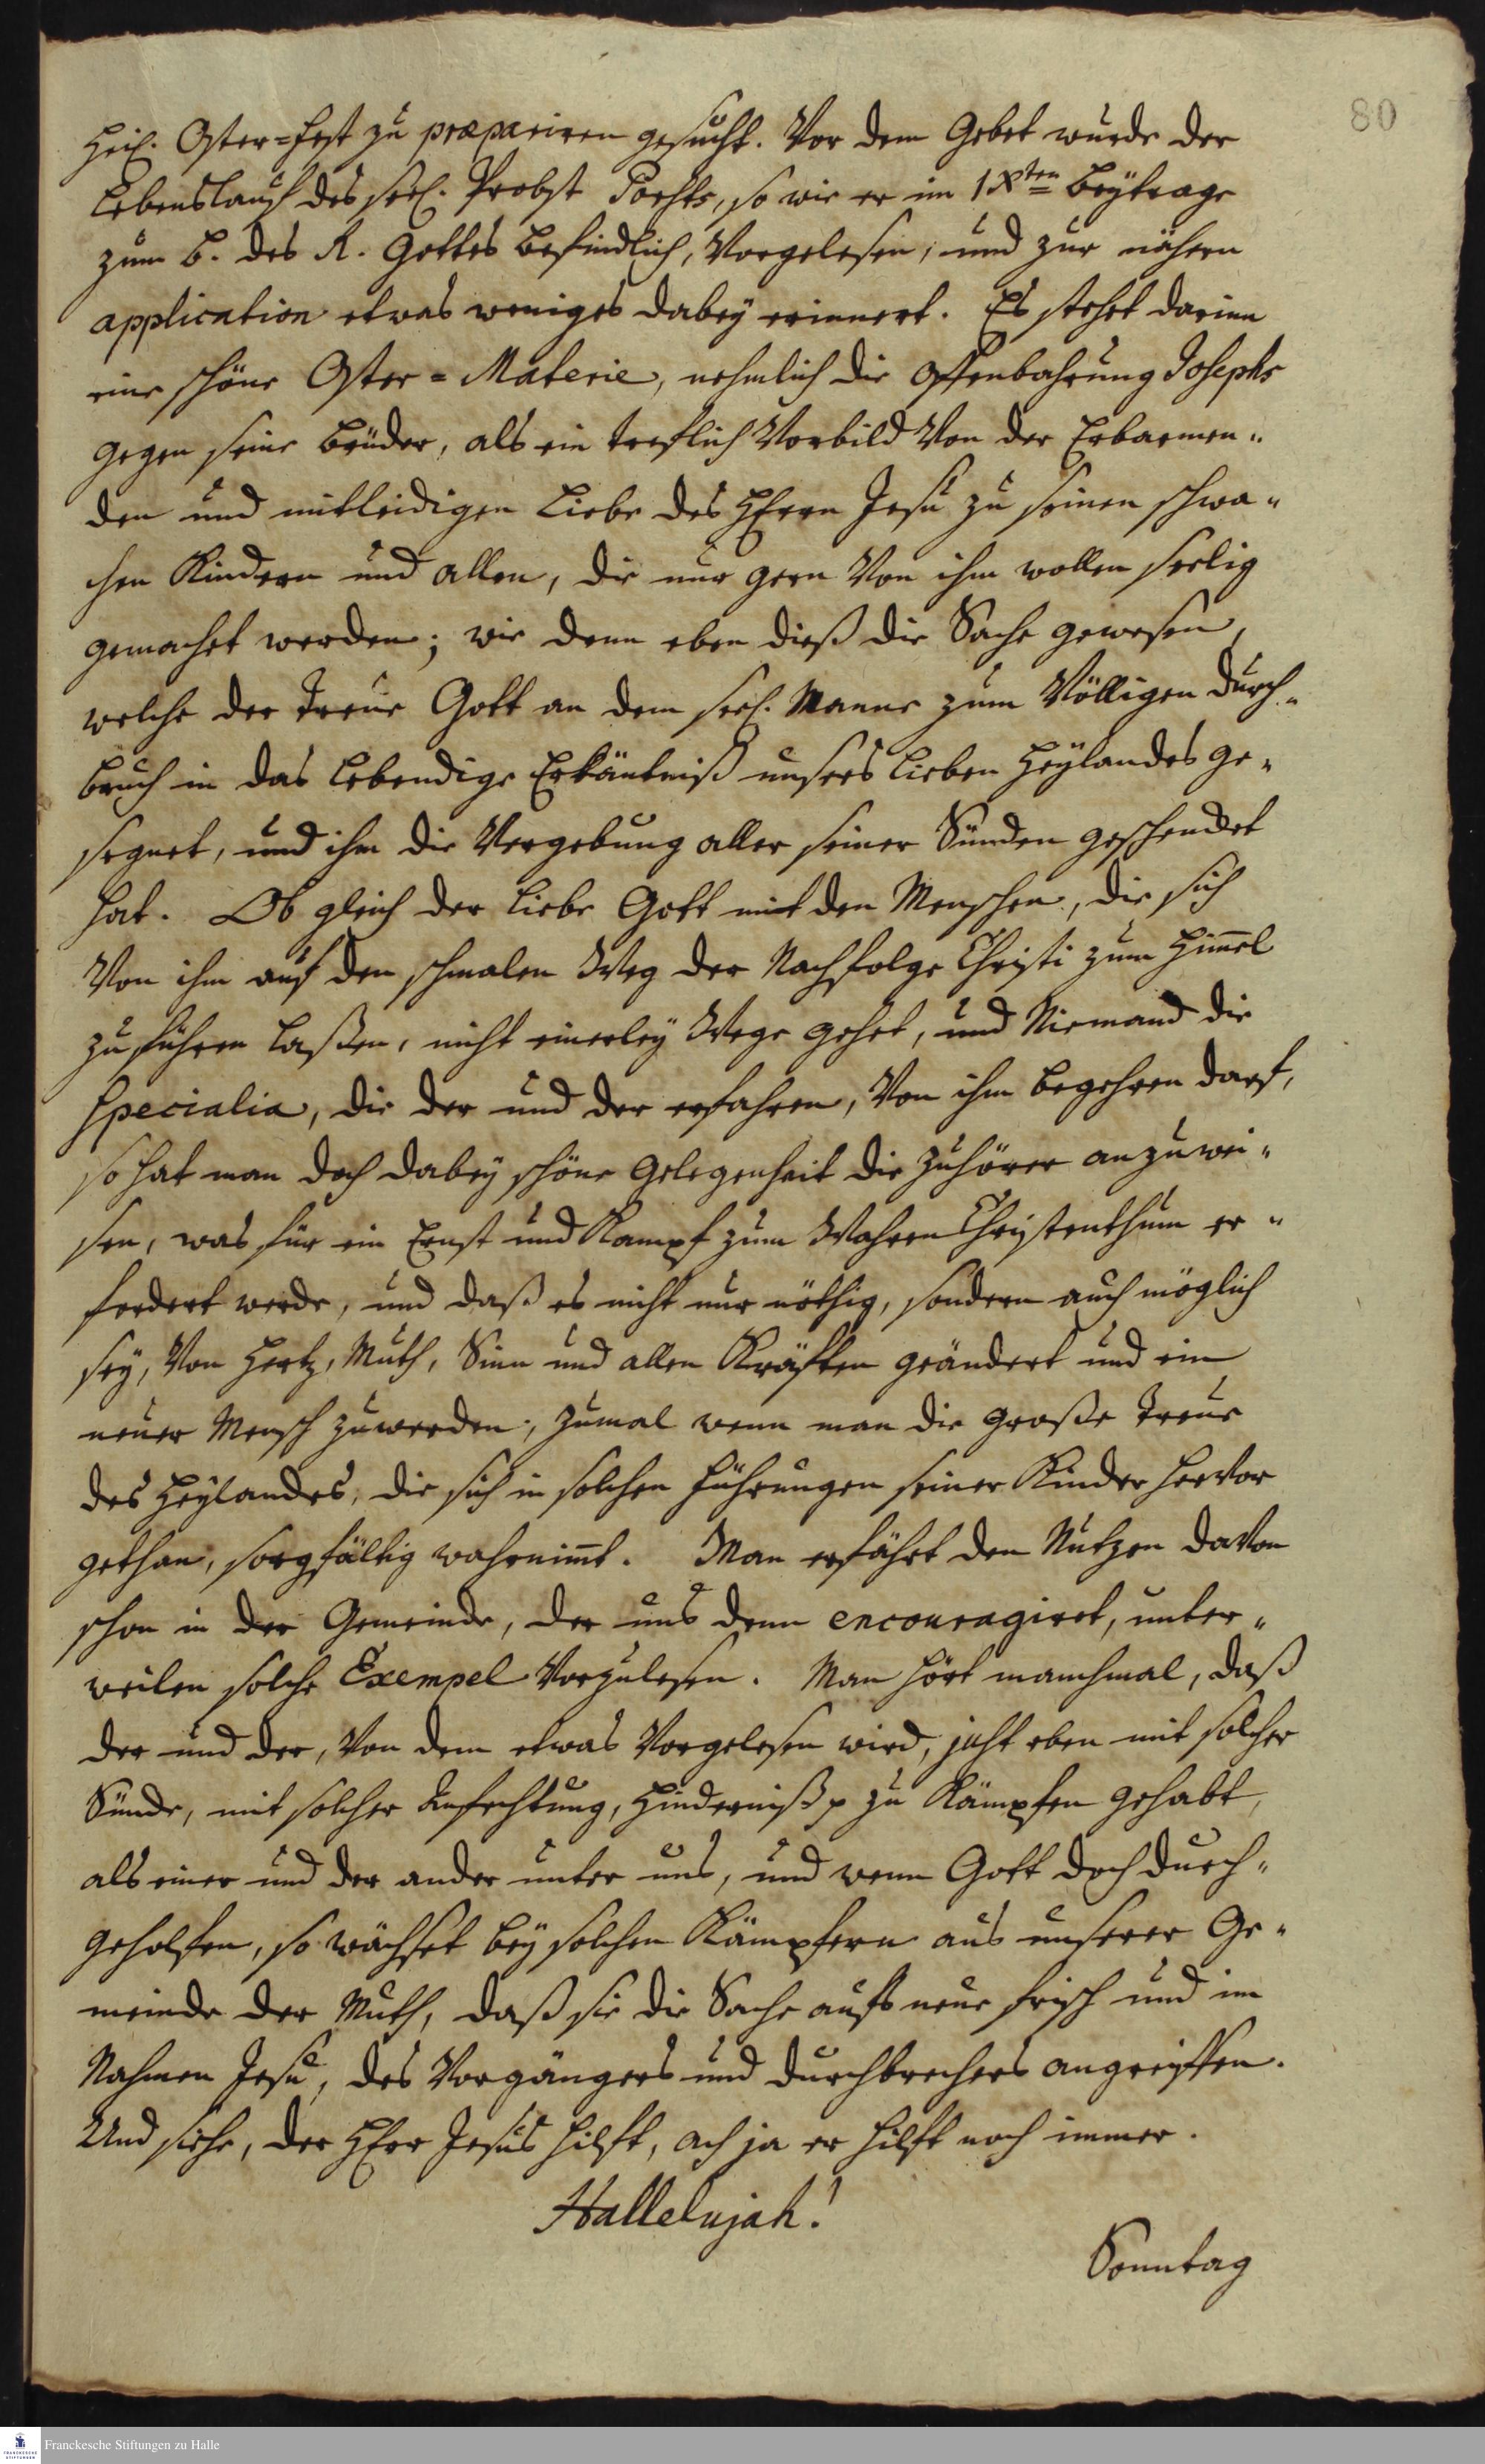 80
Heil. Oster=Fest zu præpariren gesucht. Vor dem Gebet wurde der
Lebenslauf des seel. Probst Porsts, so wie er im IXten Beytrage
zum B. des R. Gottes befindlich, Vorgelesen, und zur nähern
application etwas weniges dabeÿ erinnert. Es stehet darinn
eine schöne Oster=Materie, nehmlich die Offenbahrung Josephs
gegen seine Brüder, als ein treflich Vorbild Von der Erbarmen„
den und mitleidigen Liebe des HErrn Jesu zu seinen schwa„
chen Kindern und allen, die nur gern Von ihm wollen seelig
gemachet werden; wie denn eben dieß die Sache gewesen,
welche der treue Gott an dem seel. Manne zum Völligen Durch„
bruch in das lebendige Erkäntniß unsers lieben Heÿlandes ge„
segnet, und ihm die Vergebung aller seiner Sünden geschencket
hat. Ob gleich der liebe Gott mit den Menschen, die sich
Von ihm auf den schmalen Weg der Nachfolge Christi zum Himel
zu führen laßen, nicht einerleÿ Wege gehet, und Niemand die
specialia, die der und der erfahren, Von ihm begehren darf,
so hat man doch dabeÿ schöne Gelegenheit die Zuhörer anzuwei„
sen, was für ein Ernst und Kampf zum Wahren Christenthum er„
fordert werde, und daß es nicht nur nöthig, sondern auch möglich
seÿ, Von Hertz, Muth, Sinn und allen Kräften geändert und ein
neuer Mensch zuwerden, zumal wenn man die große Treue
des Heÿlandes, die sich in solchen Führungen seiner Kinder herVor
gethan, sorgfältig wahrnimt. Man erfährt den Nutzen daVon
schon in der Gemeinde, der uns denn encouragiret, unter„
weilen solche Exempel Vorzulesen. Man hört manchmal, daß
der und der, Von dem etwas Vorgelesen wird, just eben mit solcher
Sünde, mit solcher Anfechtung, Hinderniß p zu Kämpfen gehabt,
als einer und der ander unter uns, und wenn Gott doch durch„
geholfen, so wächset beÿ solchen Kämpfern aus unserer Ge„
meinde der Muth, daß sie die Sache aufs neue frisch und im
Nahmen Jesu, des Vorgängers und Durchbrechers angreiffen.
Und siehe, der HErr Jesus hilft, ach ja er hilft noch immer.
Hallelujah!
Sonntag
Franckesche Stiftungen zu Halle